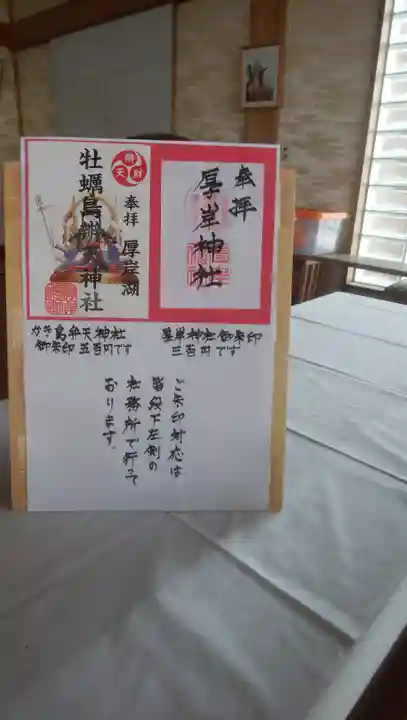 奉拝
厚岸神社
弁財天
奉拝 厚岸湖
牡蠣島辨天神社
厚岸神社御朱印
三百円です
カキ島弁天神社
御朱印 五百円です
ご朱印対応は
階段下左側の
社務所で行って
おります。